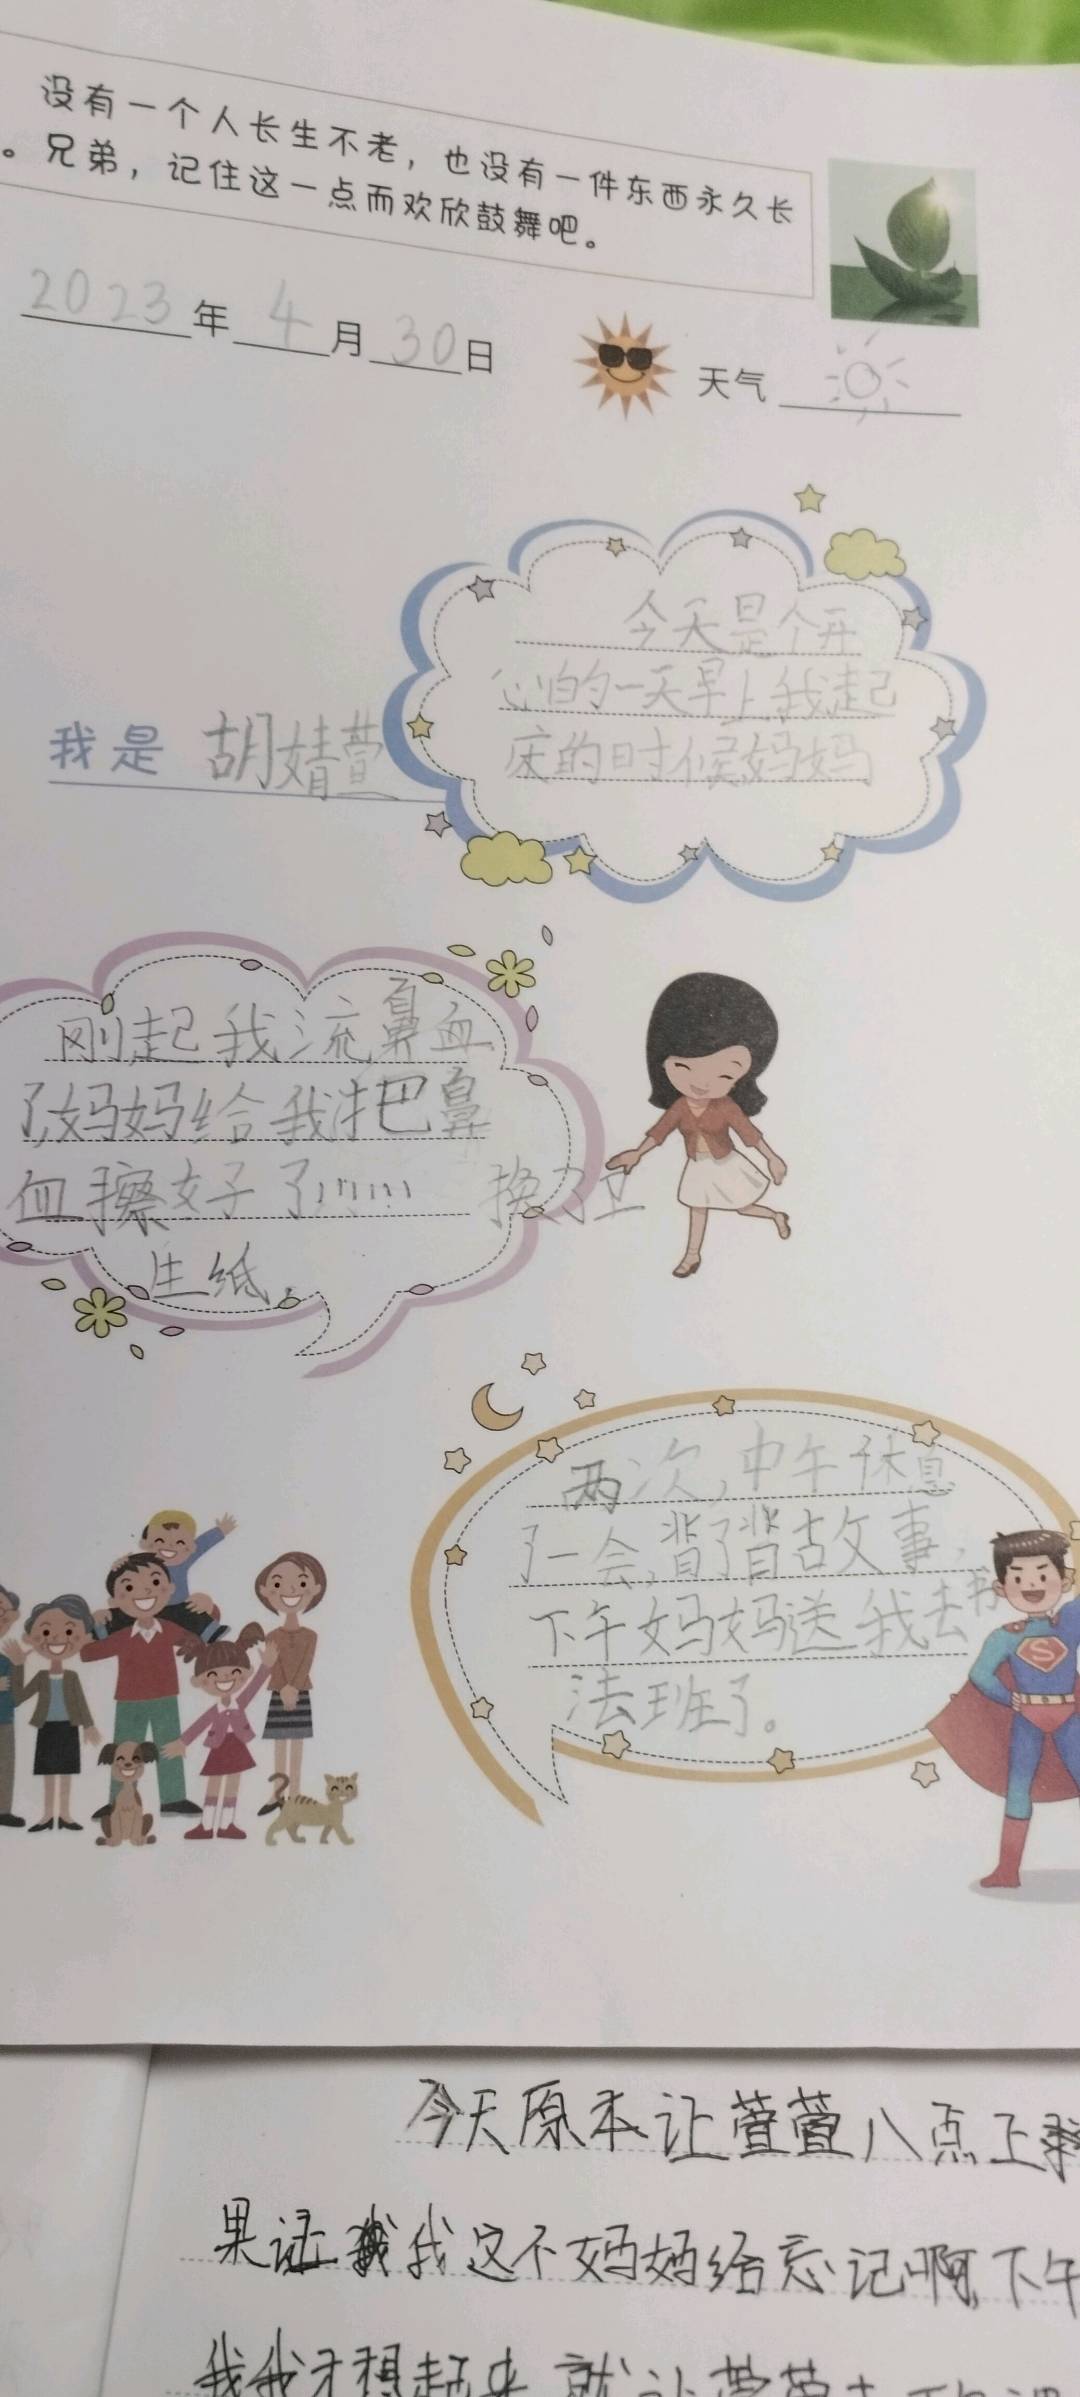 没有一个人长生不老，也没有一件东西永久长
。兄弟，记住这一点而欢欣鼓舞吧。
2023年4月30日 天气
今天是个开
心的一天早上我起
床的时候妈妈
我是 胡婧萱
刚起我流鼻血
了妈妈给我把鼻
血擦好了!!!!!! 换了卫
生纸.
两次,中午休息
了一会,背了背故事,
下午妈妈送我去书
法班了。
S
今天原本让萱萱八点上
果 我这个妈妈给忘记啊,下午
我我才想起来 就让萱萱去